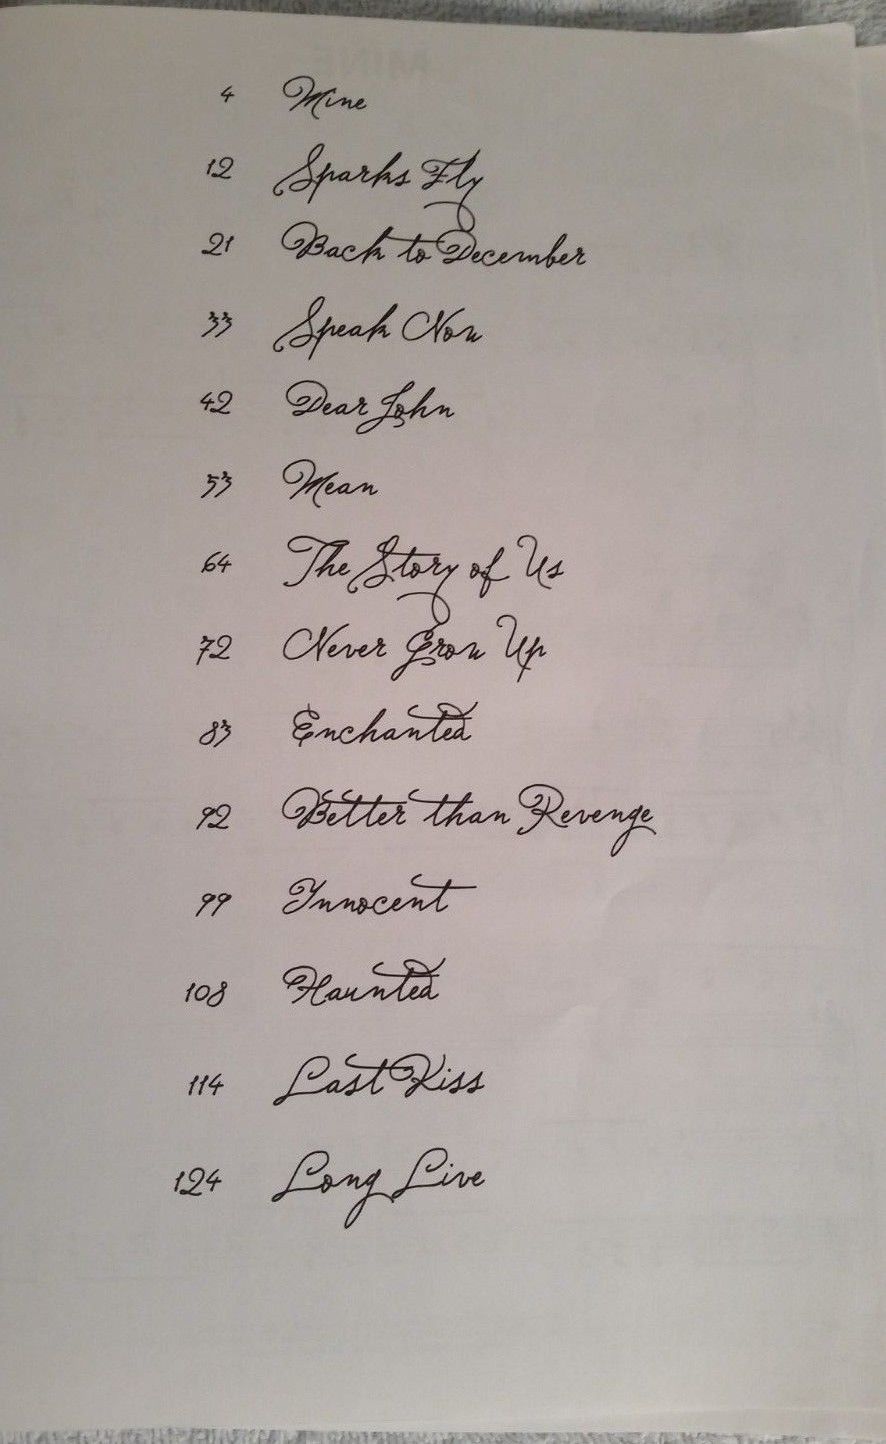 4 Mine
12 Sparks Fly
21 Back to December
33 Speak Now
42 Dear John
53 Mean
64 The Story of Us
72 Never Grow Up
83 Enchanted
92 Better than Revenge
99 Innocent
108 Haunted
114 Last Kiss
124 Long Live